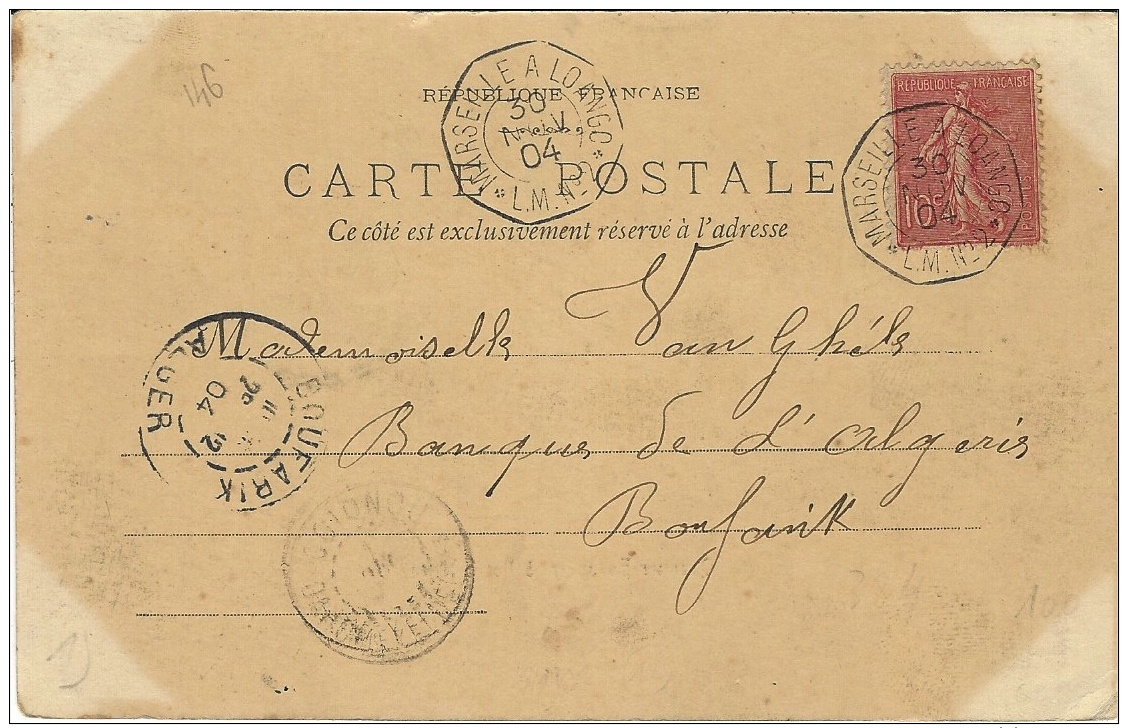 146
RÉPUBLIQUE FRANÇAISE
CARTE POSTALE
Ce côté est exclusivement réservé à l'adresse
MARSEILLE A LOANGO
30
NOV
04
* L.M. No 2 *
RÉPUBLIQUE FRANÇAISE
POSTES
MARSEILLE A LOANGO
30
NOV
04
* L.M. No 2 *
Mademoiselle Van Ghéle
Banque de d'Algerie
Boufarik
BOUFARIK
ALGER
12
04
100